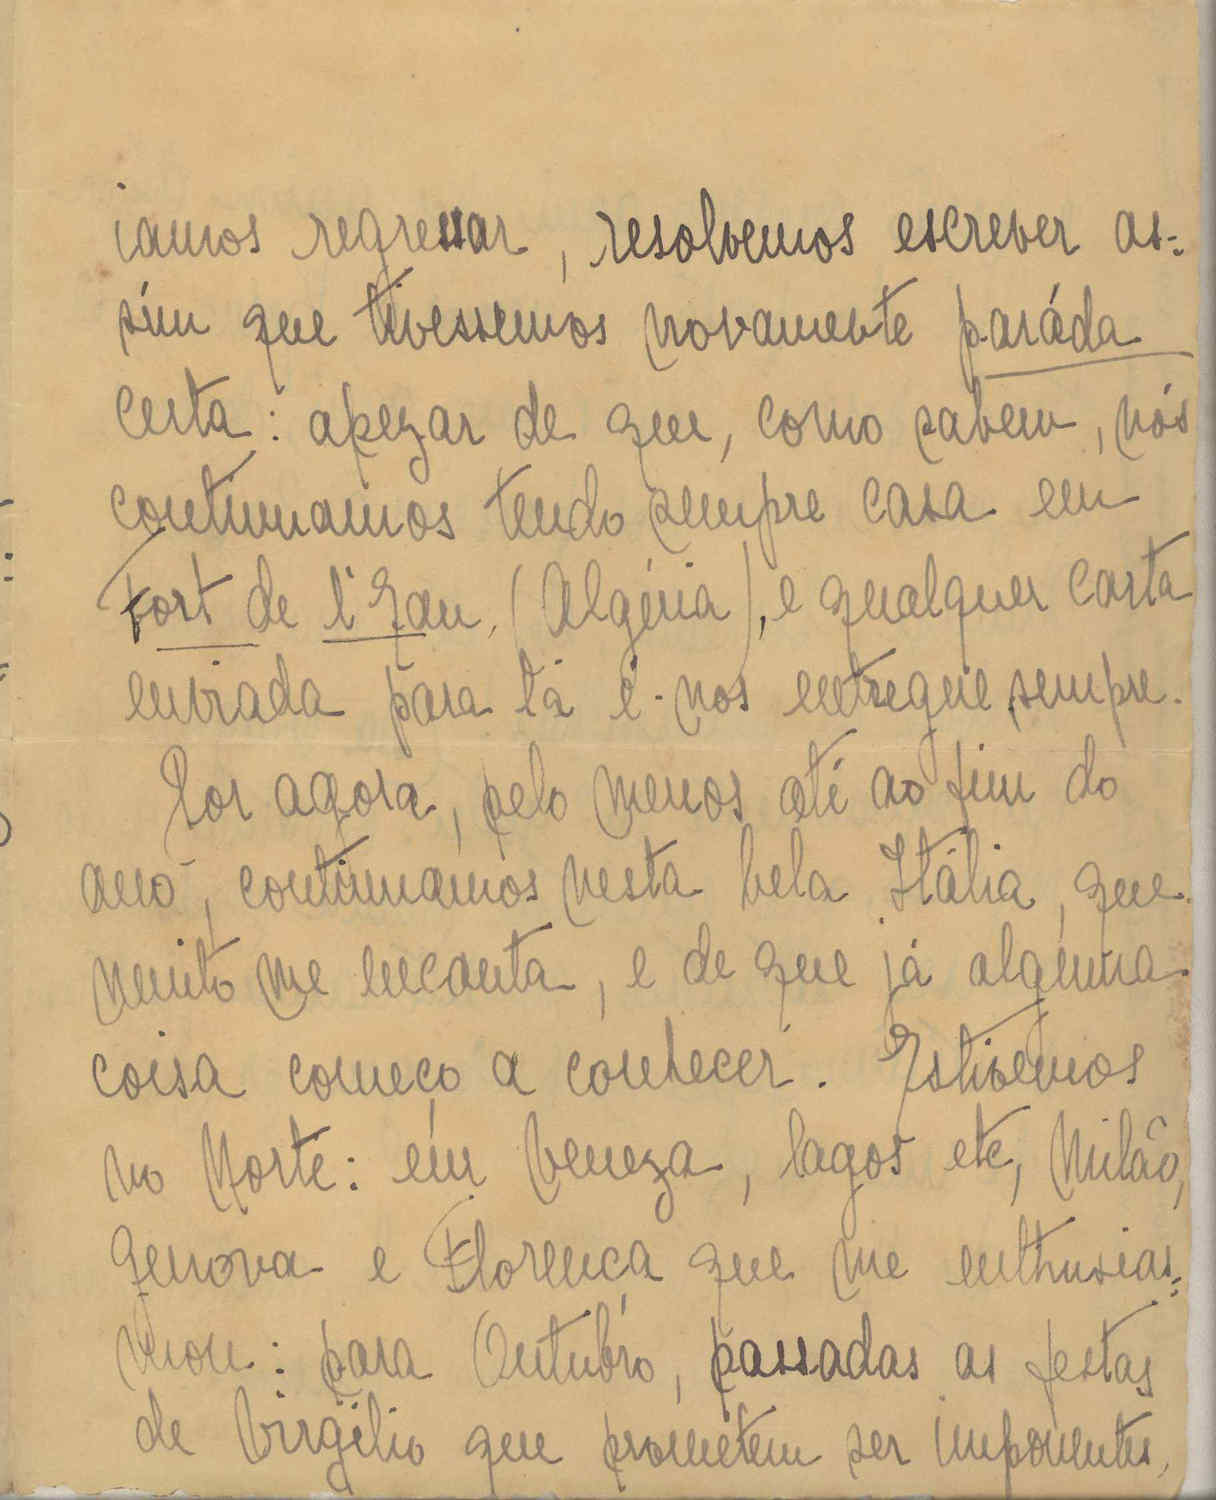 iamos regressar, resolvemos escrever as=
sim que tivessemos novamente paráda
certa: apezar de que, como sabem, nós
continuamos tendo sempre casa em
Fort de l'Eau, (Algéria), e qualquer carta
enviada para lá é-nos entregue sempre.
Por agora, pelo menos até ao fim do
ano, continuamos nesta bela Itália, que
muito me encanta, e de que já alguma
coisa começo a conhecer. Estivemos
no Norte: em Veneza, lagos etc, Milão,
Genova e Florença que me enthusias=
mou: para Outubro, passadas as festas
de Virgilio que prometem ser imponentes,